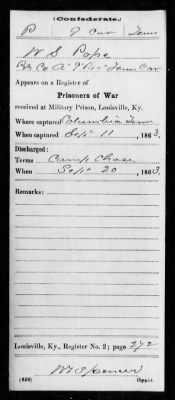 (Confederate.)
P 9 Cav Tenn
W. S. Pope
Co. A. 9 Tenn Cav
Appears on a Register of
Prisoners of War
received at Military Prison, Louisville, Ky.
Where captured Columbia Tenn
When captured Sept 11, 1863.
Discharged:
Terms Camp Chase
When Sept 20, 1863.
Remarks:
Louisville, Ky., Register No. 2; page 272
(639) Copyist.